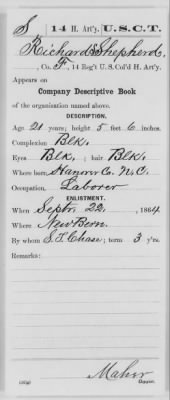 S 14 H. Art'y. U.S.C.T.
Richard Shepherd,
, Co. F, 14 Reg't U.S. Col'd H. Art'y.
Appears on
Company Descriptive Book
of the organization named above.
DESCRIPTION.
Age 21 years; height 5 feet 6 inches.
Complexion Blk.
Eyes Blk.; hair Blk.
Where born Hanover Co. N.C.
Occupation, Laborer
ENLISTMENT.
When Septr. 22, 1864
Where New Bern.
By whom S.T. Chase; term 3 y'rs.
Remarks:
Maher
Copyist.